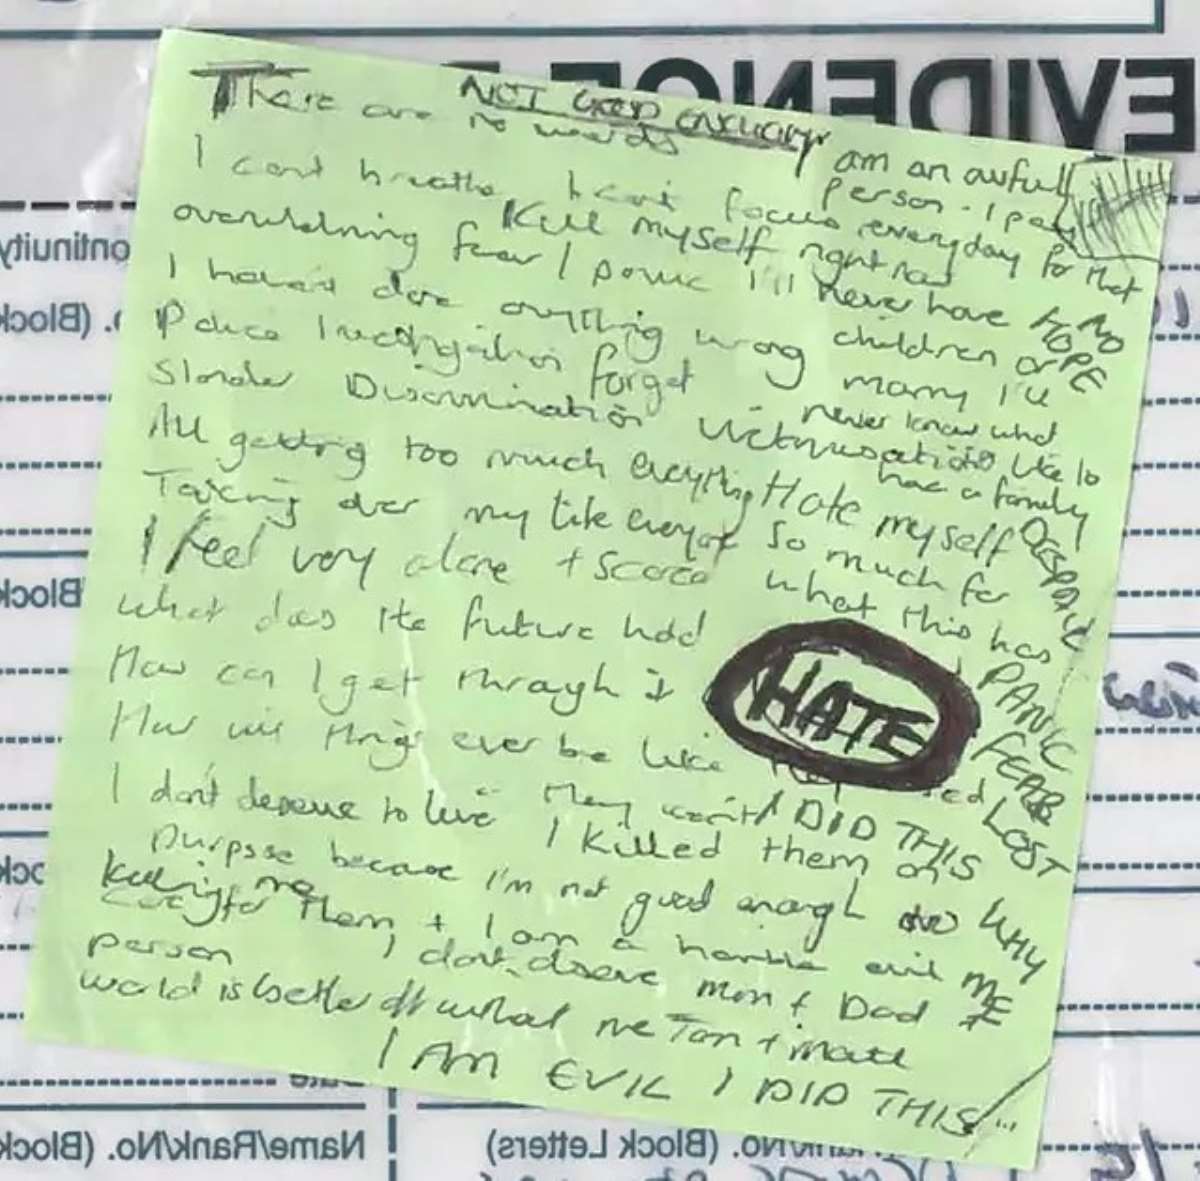 NOT GOOD ENOUGH
There are no words
I am an awful person. I pay
I cant breathe I cant focus everyday for that
Kill myself right now
overwhelming fear / panic I'll never have
NO HOPE
I haven't done anything wrong children or
Police Investigation forget marry I'll
never know what
Slander Discrimination Victimisation its like to
have a family
All getting too much everything Hate myself
Taking over my life everyday So much for
DESPAIR
I feel very alone + scared what this has
What does the future hold
PANIC
How can I get through it
HATE
FEAR
How will things ever be like
LOST
I don't deserve to live They won't I DID THIS
I killed them on
purpose because I'm not good enough to
WHY ME
Killing me
care for them + I am a horrible evil
person I don't deserve Mum + Dad
world is better off without me Tom + Matt
I AM EVIL I DID THIS
EVIDENCE
Continuity
(Block
Block
Name/Rank/No. (Block
/No. (Block Letters)